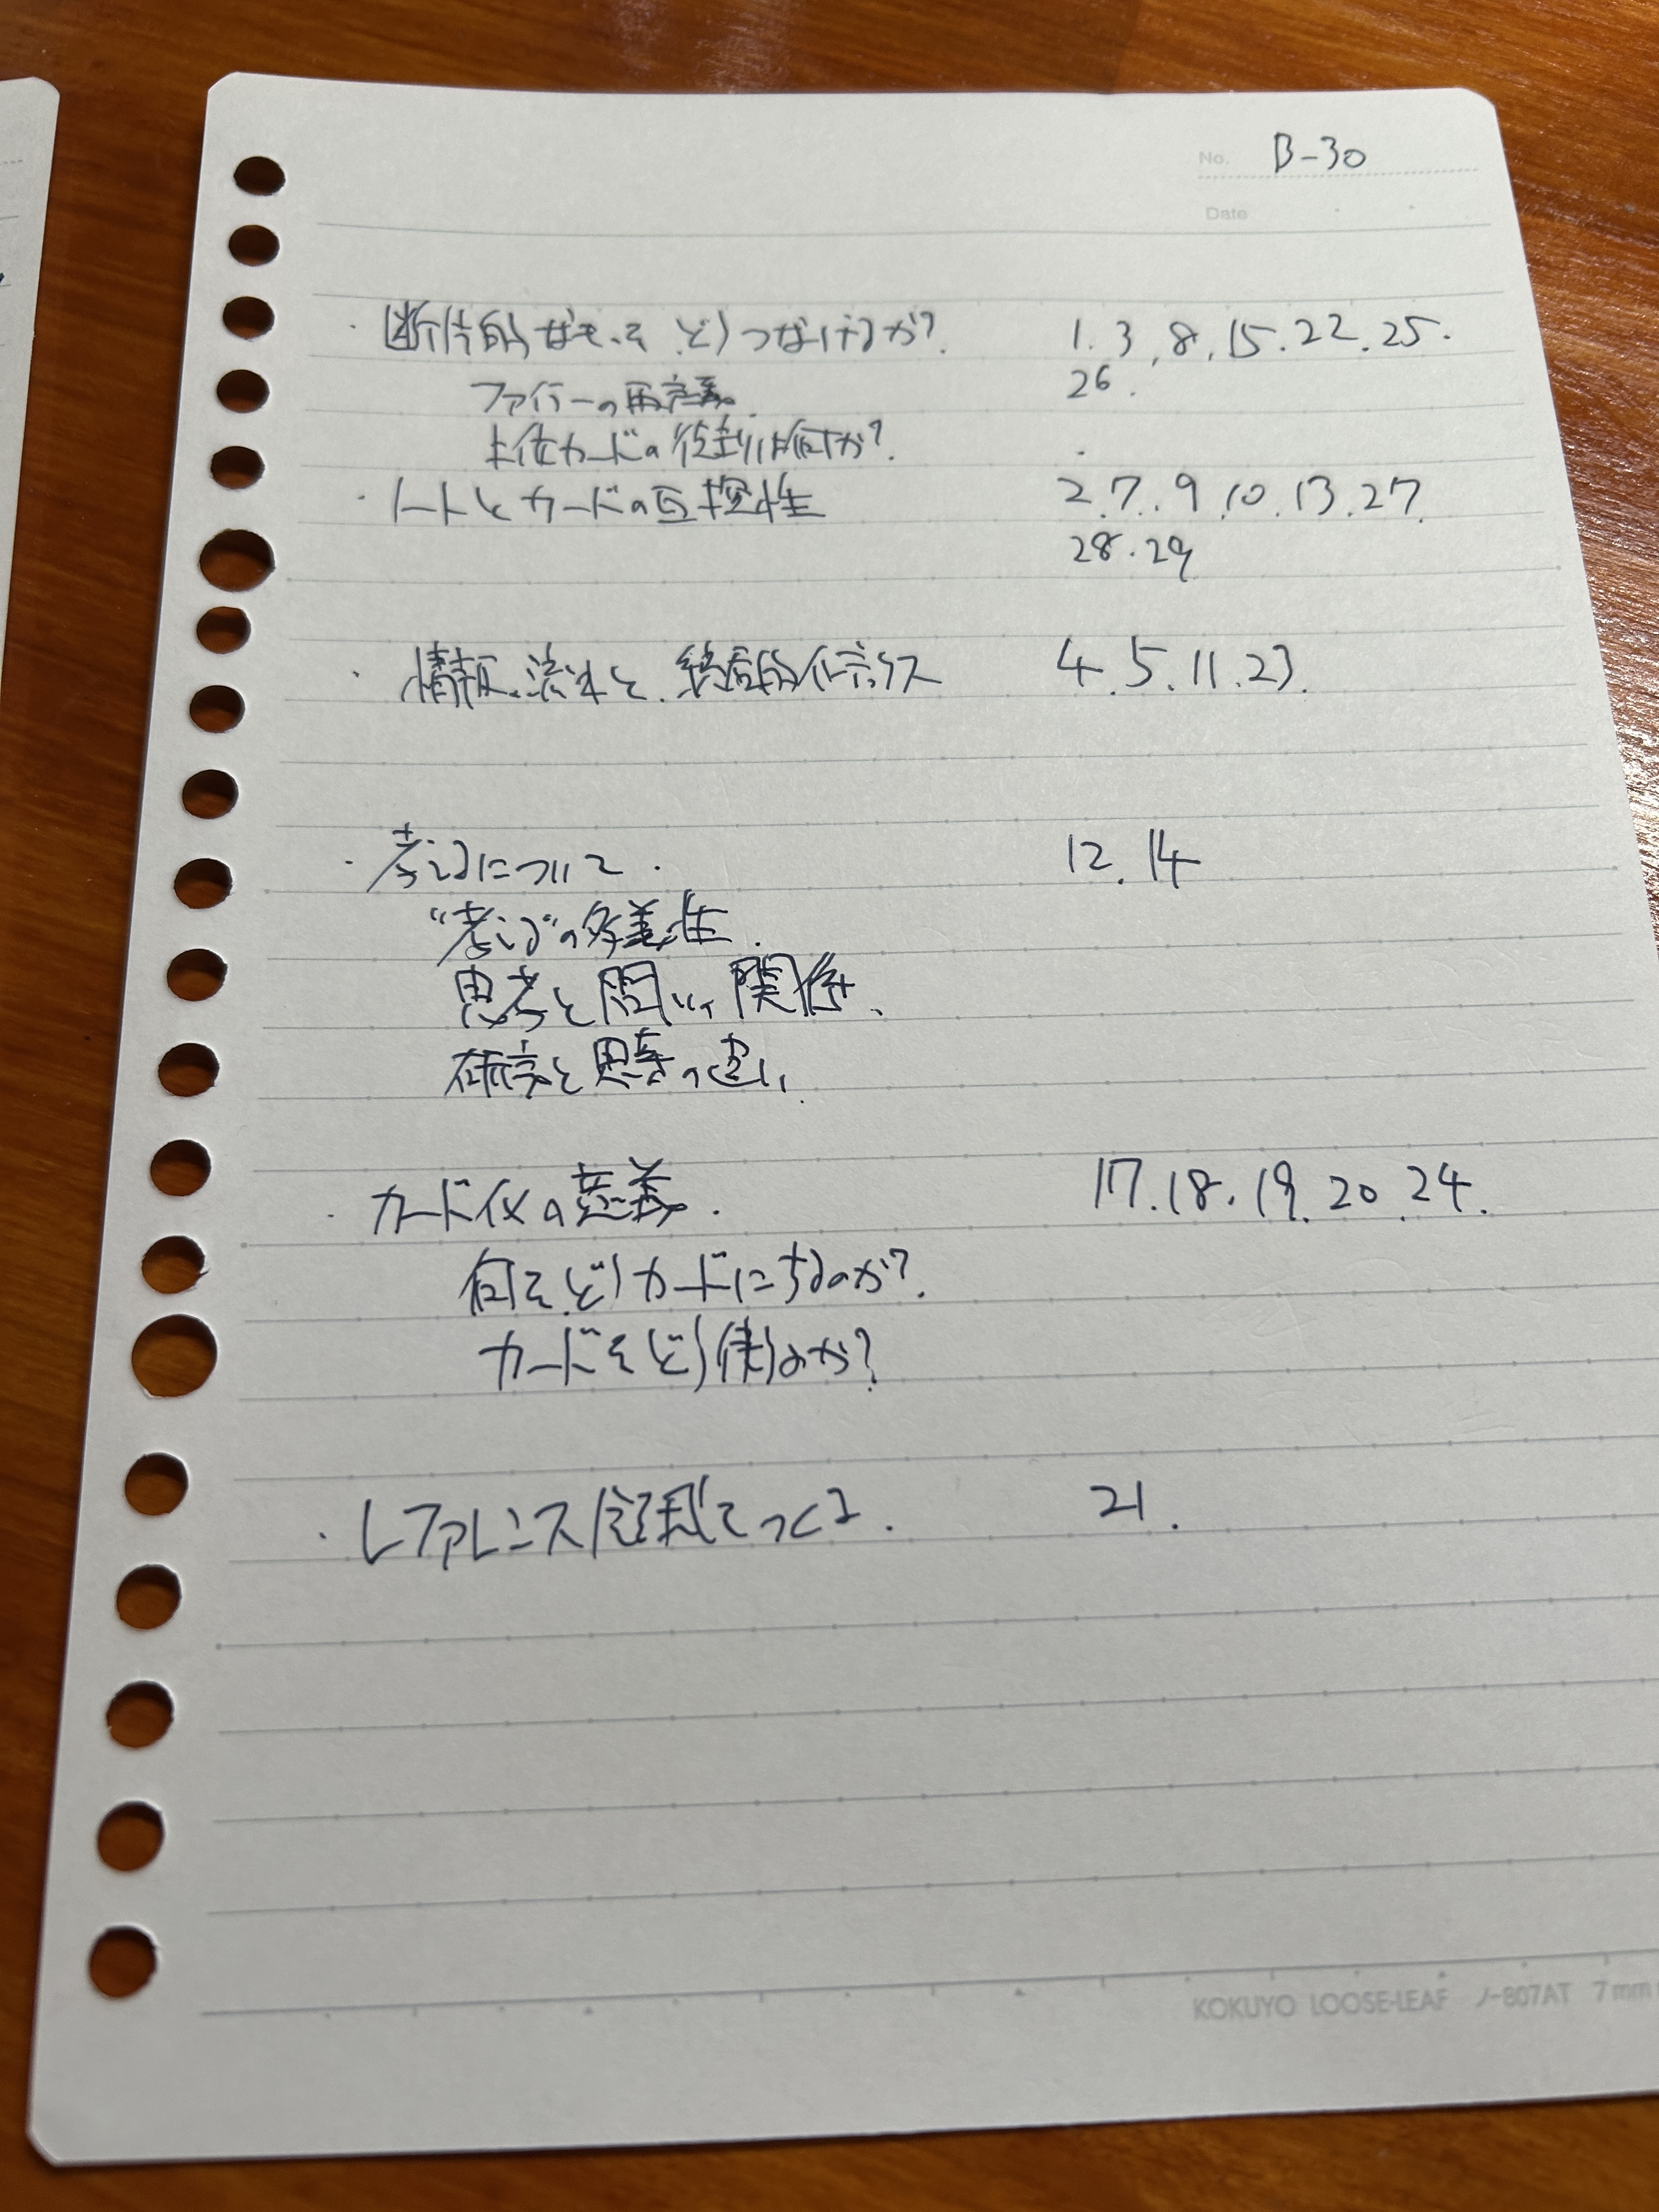 No. B-30
Date
・断片的なものを どうつなげるか? 1. 3. 8. 15. 22. 25.
ファイラーの再定義. 26.
上位カードの役割は何か?
・ノートとカードの互換性 2. 7. 9. 10. 13. 27.
28. 29
・情報の流れと. 4. 5. 11. 23.
・考えるについて. 12. 14
"考える"の多義性.
思考と問いの関係.
研究と思考の違い.
・カード化の意義. 17. 18. 19. 20. 24.
何を.どうカードにするのか?
カードをどう使うのか?
・レファレンス 21.
KOKUYO LOOSE-LEAF ノ-807AT 7mm